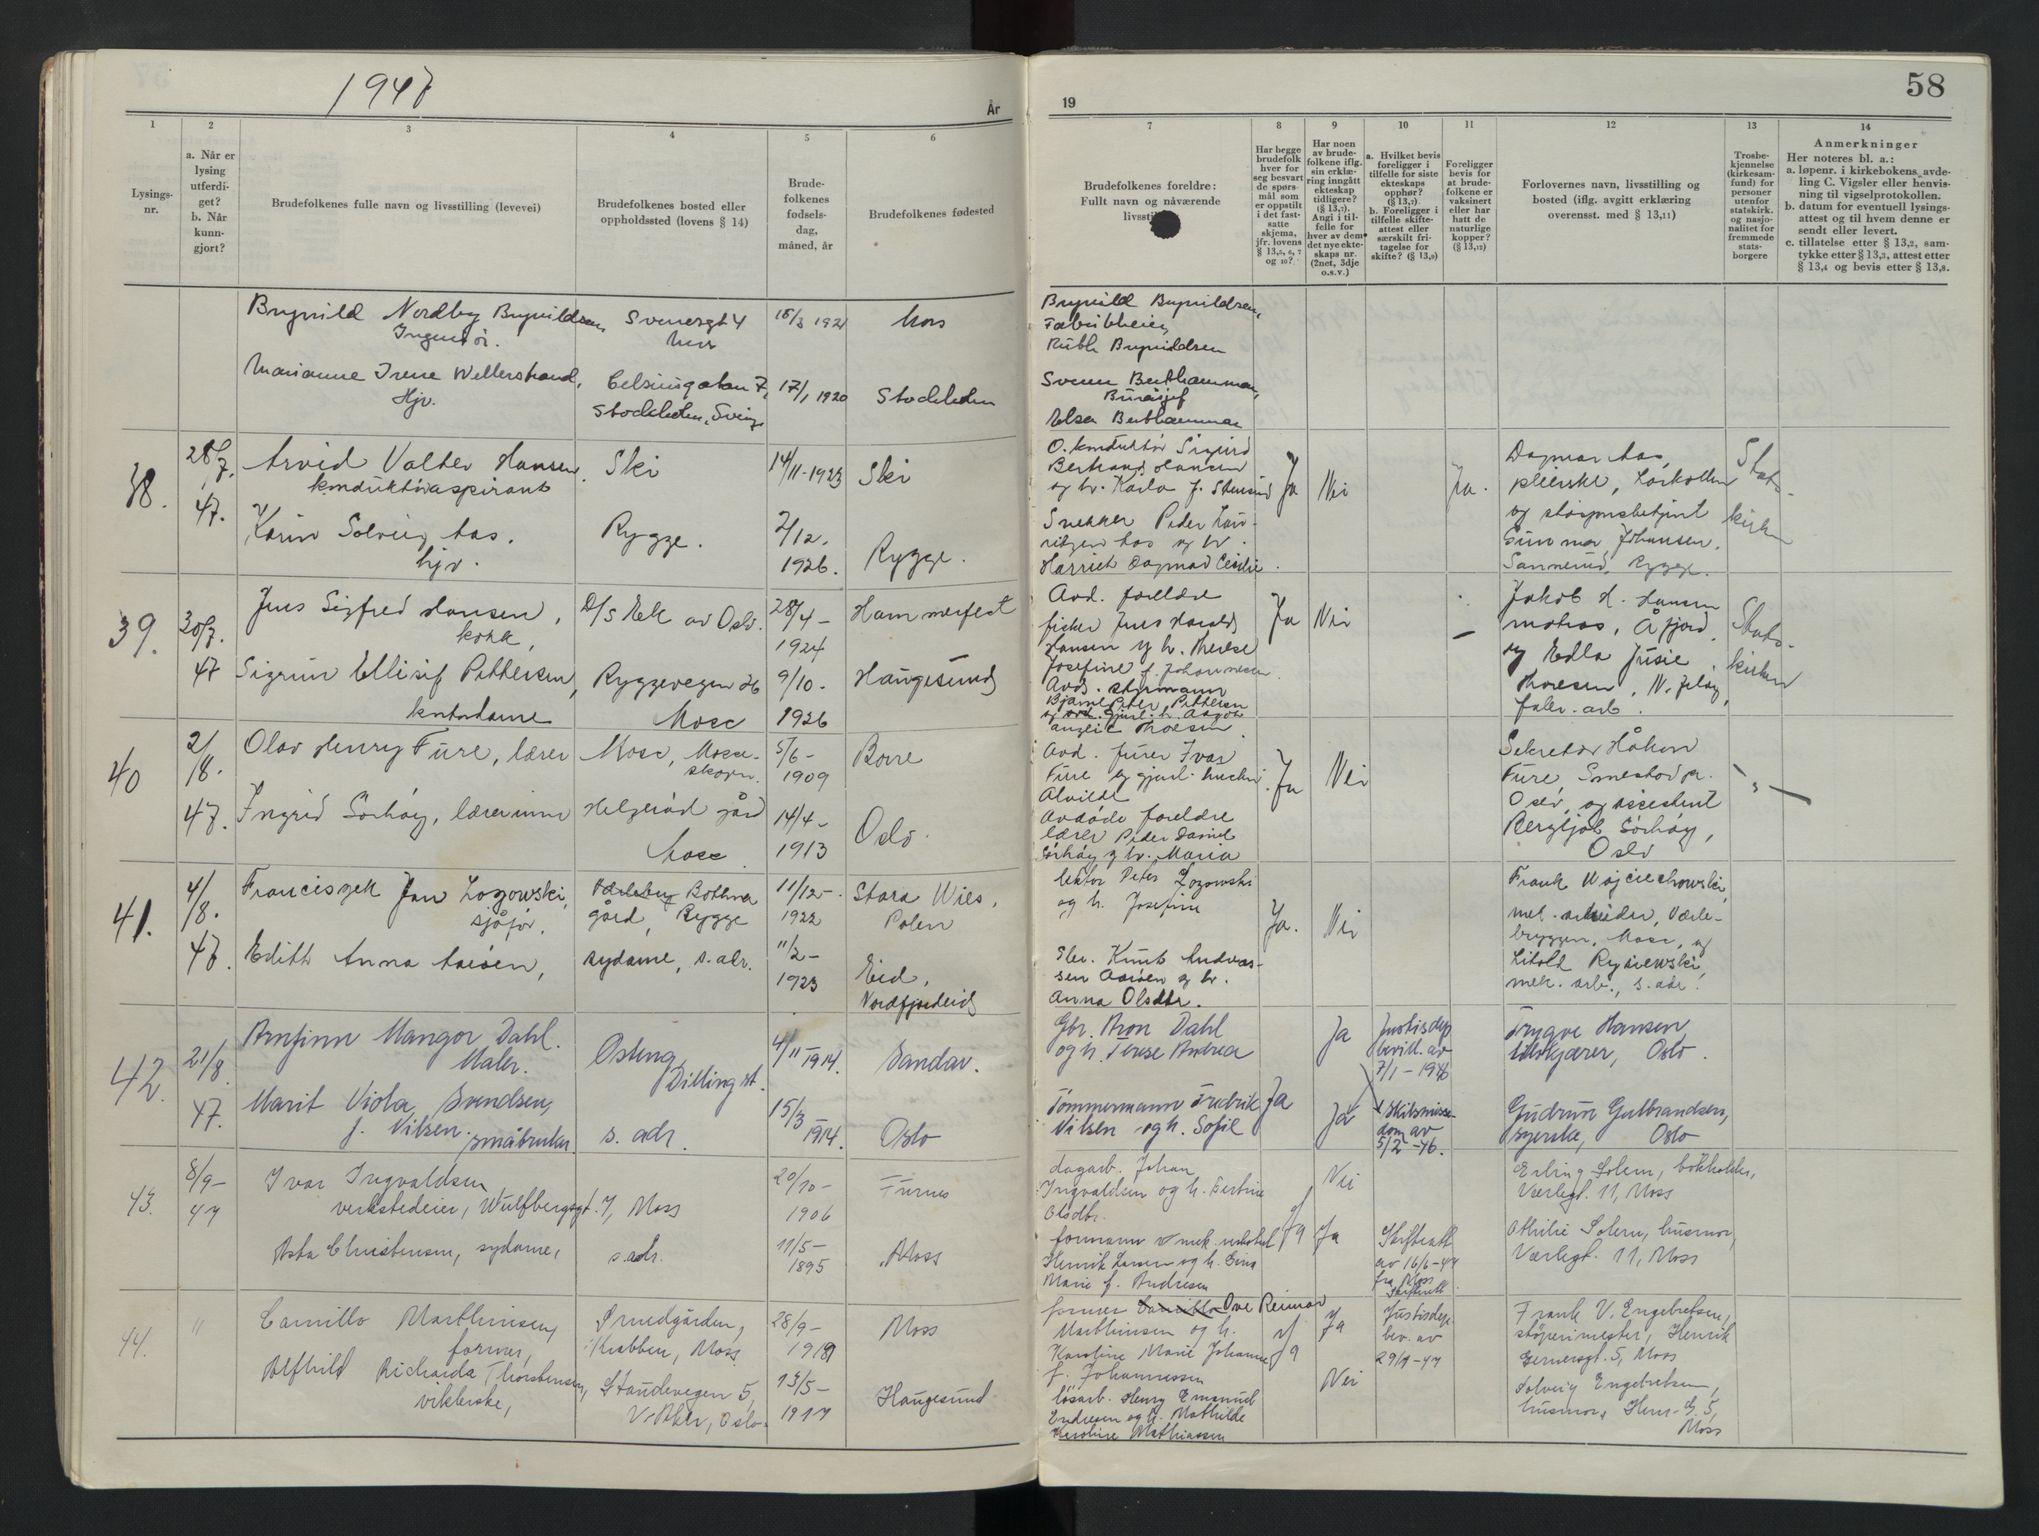 1947
År
1
2
3
4
5
6
Lysings-
nr.
a. Når er
lysing
utferdi-
get?
b. Når
kunn-
gjort?
Brudefolkenes fulle navn og livsstilling (levevei)
Brudefolkenes bosted eller
oppholdssted (lovens § 14)
Brude-
folkenes
fødsels-
dag,
måned, år
Brudefolkenes fødested
Brynild Nordby Brynildsen,
Ingeniør.
Svenesgt 4
Moss
1921
Moss
Marianne Irene Wetterstrand,
Hjv.
Celsiusgatan 7,
Stockholm, Sverige
17/1 1920
Stockholm
38.
28/7.
47.
Arvid Valter Hansen,
konduktøraspirant
Ski
14/11-1923
Ski
Karin Solveig Aas.
hjv.
Rygge.
2/12.
1926.
Rygge.
39.
30/7.
47
Jens Sigfred Hansen,
kokk,
D/S Eek av Oslo.
28/4-
1924
Hammerfest
Sigrun Ellisif Pettersen,
kontordame
Ryggevegen 26
Moss
9/10.
1926
Haugesund
40
2/8.
47.
Olav Henry Fure, lærer
Moss, Mosse-
skogen.
5/6-
1909
Borre
Ingrid Sørhøy, lærerinne
Helgerød gård
Moss.
14/4-
1913
Oslo.
41.
4/8.
47.
Franciszek Jan Lozowski,
sjåfør.
Bothner
gård, Rygge
11/12-
1922
Stara Wies,
Polen
Edith Anna Aasen,
sydame, s. adr.
11/2-
1923
Eid,
Nordfjordeid
42
21/8.
47.
Arnfinn Mangor Dahl.
Maler.
Osteng
Dilling st.
4/11-1914.
Sandøv.
Marit Viola Svendsen,
f. Nilsen. småbruker.
s. adr.
15/3
1914.
Oslo
43.
8/9-
47
Ivar Ingvaldsen
verkstedeier, Wulfbergsgt. 7, Moss
20/10-
1906
Furnes
Asta Christensen, sydame,
s. adr.
11/5-
1895
Moss
44.
"
Camillo Marthinsen,
former,
Smedgården,
Krabben, Moss
28/9-
1919
Moss
Alfhild Richarda Thorstensen,
viklerske,
Staudevegen 5,
V. Aker, Oslo.
13/5-
1917
Haugesund
19
58
7
8
9
10
11
12
13
14
Brudefolkenes foreldre:
Fullt navn og nåværende
livsstil
Har begge
brudefolk
hver for
seg besvart
de spørs-
mål som
er oppstilt
i det fast-
satte
skjema,
jfr. lovens
§ 13,5, 6, 7
og 10?
Har noen
av brude-
folkene iflg.
sin erklæ-
ring inngått
ekteskap
tidligere?
(§ 13,7).
Angi i til-
felle for
hver av dem
det nye ekte-
skaps nr.
(2net, 3dje
o.s.v.)
a. Hvilket bevis
foreligger i
tilfelle for siste
ekteskaps
opphør?
(§ 13,7).
b. Foreligger i
tilfelle skifte-
attest eller
særskilt fri-
tagelse for
skifte? (§ 13,9)
Foreligger
bevis for
at brude-
folkene er
vaksinert
eller har
hatt de
naturlige
kopper?
(§ 13,12)
Forlovernes navn, livsstilling og
bosted (iflg. avgitt erklæring
overensst. med § 13,11)
Trosbe-
kjennelse
(kirkesam-
fund) for
personer
utenfor
statskirk.
og nasjo-
nalitet for
fremmede
stats-
borgere
Anmerkninger
Her noteres bl. a.:
a. løpenr. i kirkebokens avde-
ling C. Vigsler eller henvis-
ning til vigselprotokollen.
b. datum for eventuell lysings-
attest og til hvem denne er
sendt eller levert.
c. tillatelse etter § 13,2, sam-
tykke etter § 13,3, attest etter
§ 13,4 og bevis etter § 13,8.
Brynild Brynildsen,
Fabrikkeier,
Ruth Brynildsen
Svenn Berthamman,
Byråsjef
Elsa Berthamman
O. konduktør Sigurd
Bertrand Hansen
og h. Karla f. Stensrud
Ja
Nei
Ja.
Dagmar Aas,
pleierske, Larkollen
og stasjonsbetjent
Gunnar Johansen,
Sannerud, Rygge.
Stats-
kirken
Snekker Peder Lau-
ritzen Aas og h.
Harriet Dagmar Cecilie.
Avd. foreldre
fisker Jens Harald
Hansen og h. Therese
Josefine f. Johannesen.
Ja
Nei
-
Jakob H. Hansen
Åfjord,
og Edla Jusie
Thoresen, N. Jeløy,
fabr. arb.
Stats-
kirken
Avd. styrmann
Bjarne Peter Pettersen
Thoresen.
Avd. furer Ivar
Fure og gjenl. hustru
Alvilde
Ja
Nei
Sekretær Håkon
Fure, Smestad pr.
Oslo, og assistent
Bergljot Sørhøy,
Oslo
- " -
Avdøde foreldre
lærer Peder Daniel
Sørhøy og h. Maria
lektor Peter Lozowski
og h. Josefine
Ja.
Nei
Frank Wojciechowski,
mek. arbeider, Værle-
bryggen, Moss, og
Litold Rysiewski,
mek. arb., s. adr.
Knut Andreas-
sen Aasen og h.
Anna Olsdtr.
Gbr. Aron Dahl
og h. Terese Andrea
Ja
Justisdep
bevill. av
7/1-1946
Trygve Hansen,
tilskjærer, Oslo.
Tømmermann Fredrik
Nilsen og h. Sofie
Ja
Ja
Skilsmisse-
dom av
5/2-46.
Gudrun Gulbrandsen,
syerske, Oslo
dagarb. Johan
Ingvaldsen og h. Bertine
Olsdtr.
Nei
Erling Solem, bokholder,
Værlegt. 11, Moss
formann v. mek. verksted
Henrik Larsen og h. Gina
Marie f. Andresen
Ja
Ja
Skifteatt
av 16/6-47
fra Moss
Skifterett
Othilie Solem, husmor,
Værlegt. 11, Moss
former Ove Reimar
Marthinsen og h.
Karoline Marie Johanne
f. Johannessen
Ja
Ja
Justisdep.
bev. av
29/7-47
Frank V. Engebretsen,
støperimester, Henrik
Gernersgt. 5, Moss
løsarb. Henry Emanuel
Endresen og h. Mathilde
Karoline Mathiassen
Nei
Solveig Engebretsen,
husmor, Henr. G. 5,
Moss